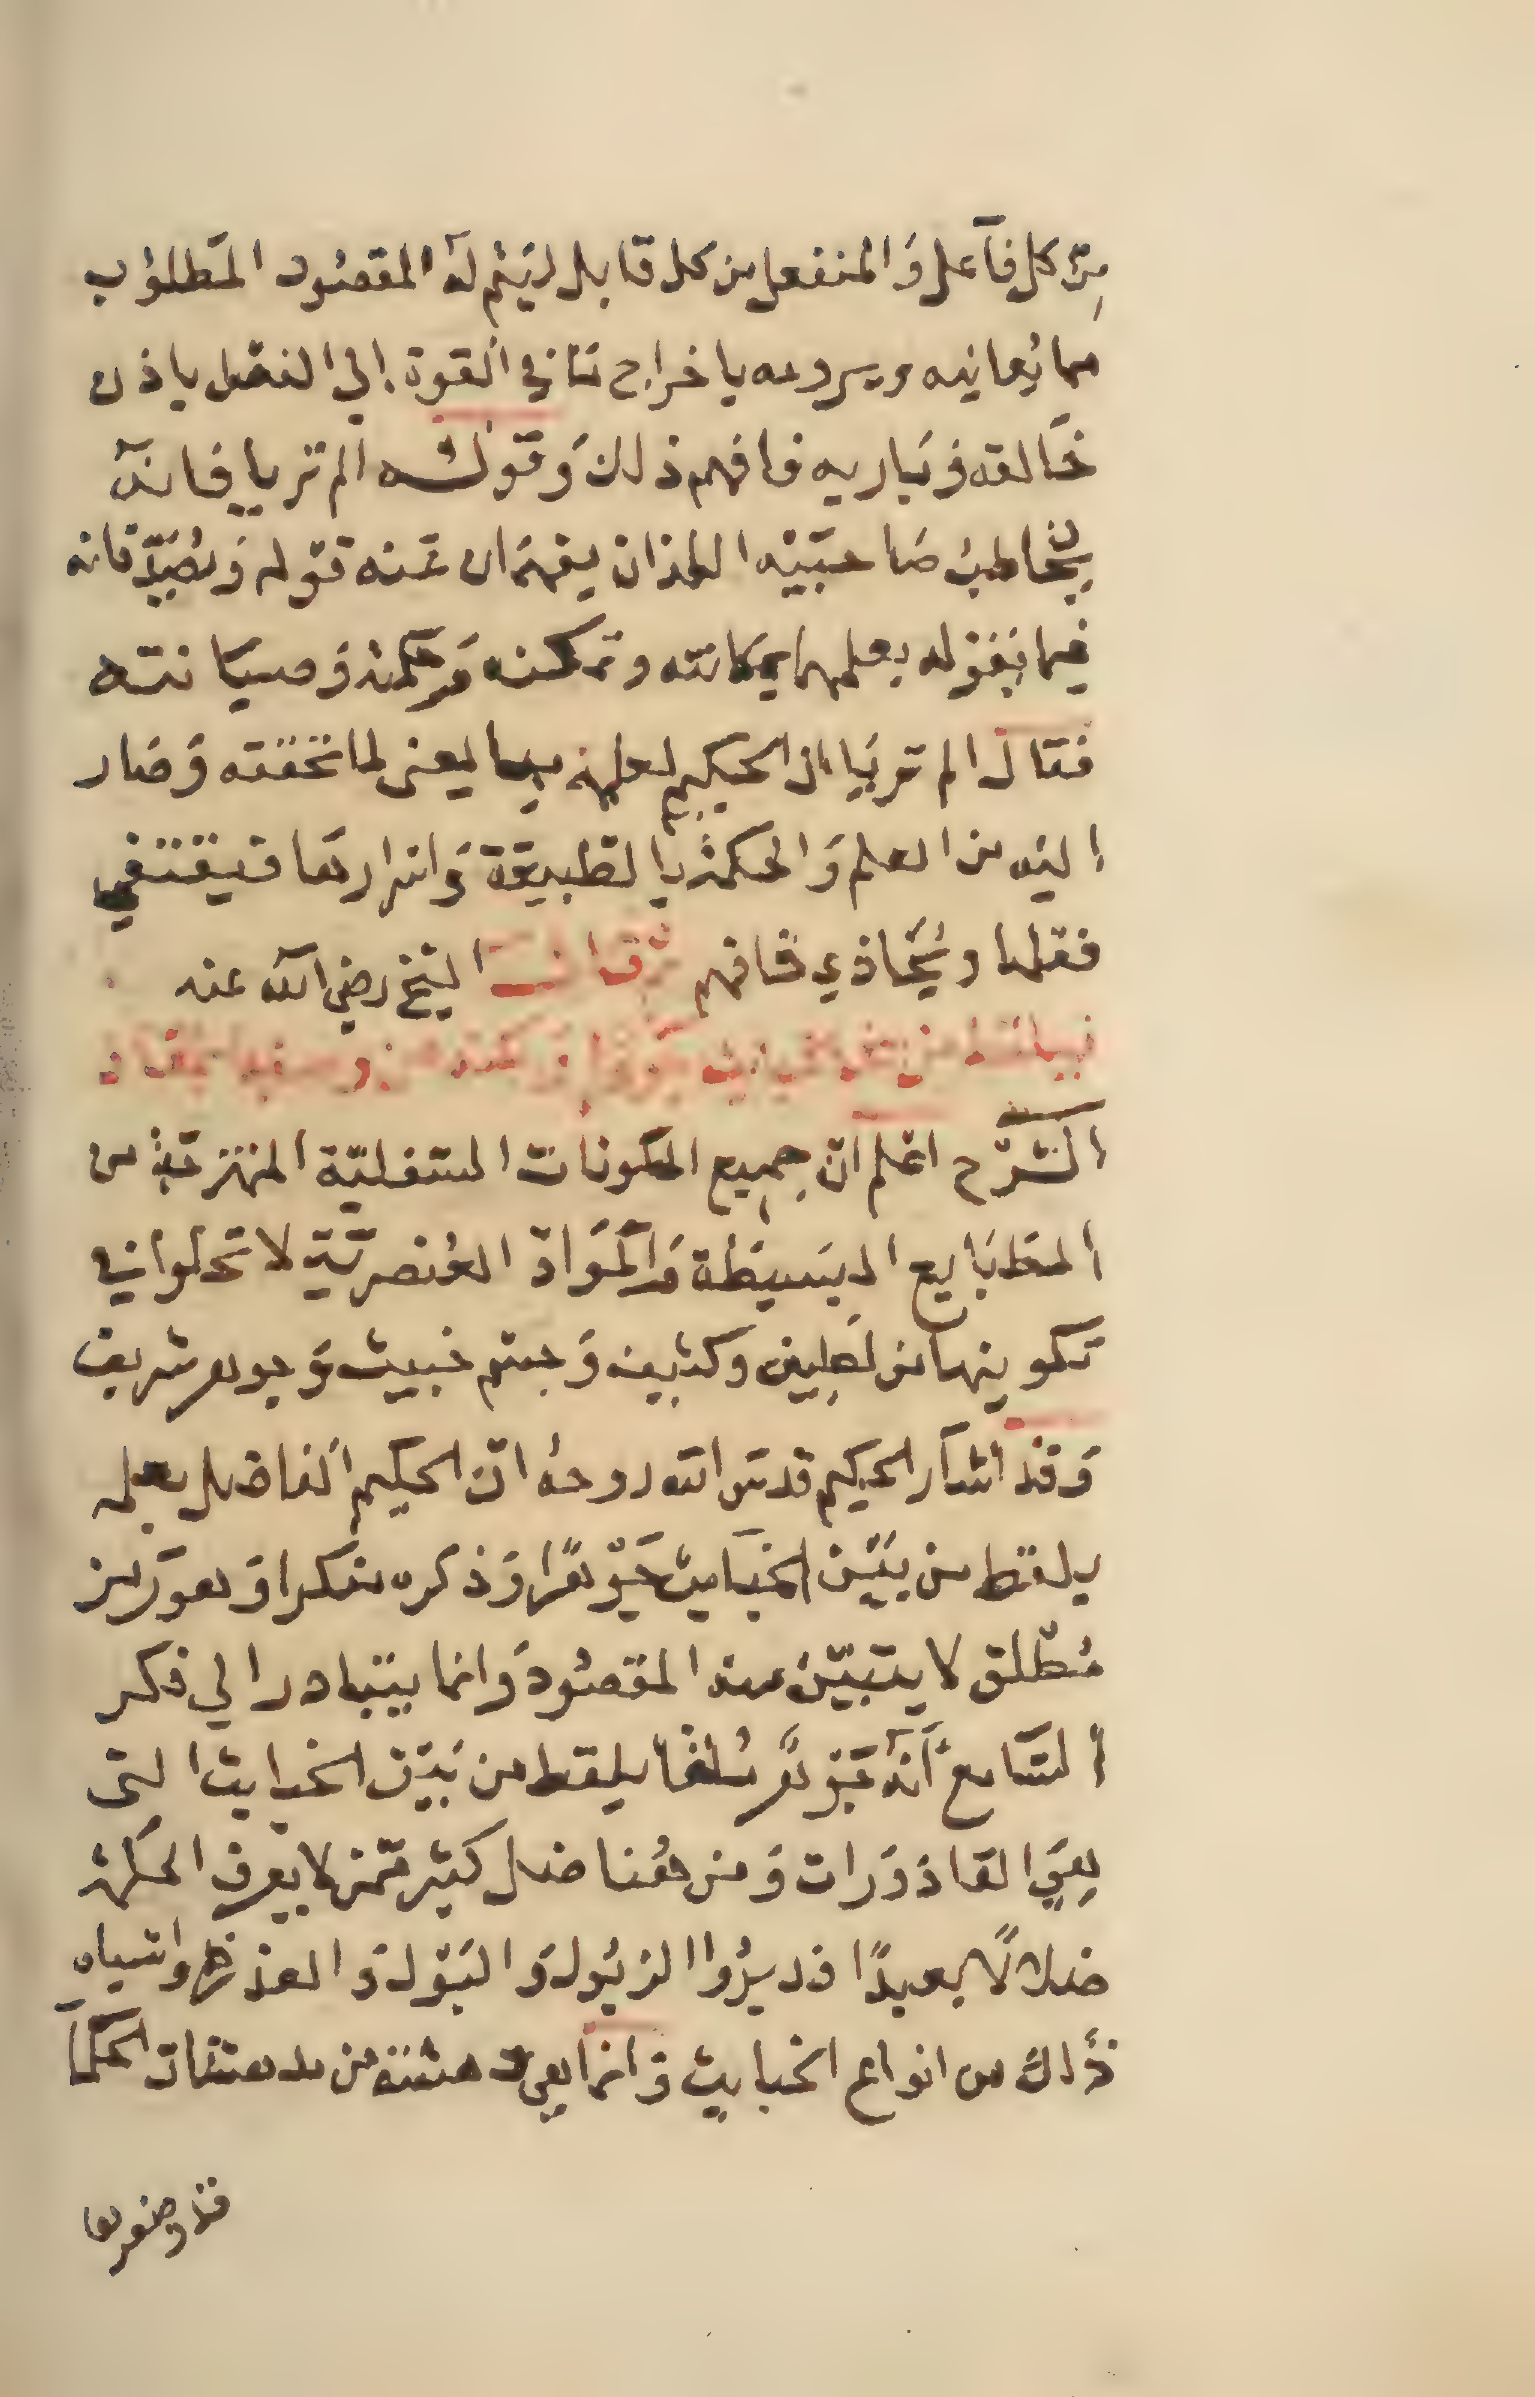 من كل فاعل والمنفعل من كل قابل ليتم له المقصود المطلوب
مما يعانيه ويرومه باخراج ما في القوة الي الفعل باذن
خالقه وباريه فافهم ذلك وقوله الم تريا فانه
يخاطب صاحبيه اللذان يفهمان عنه قوله ويصدقانه
فيما يقوله بعلمهما بمكانته وتمكنه وحكمته وصيانته
فقال الم تريا ان الحكيم لعلمه بما يعني لما تحققه وصار
اليه من العلم والحكمة بالطبيعة واسرارها فيقتفي
فعلها ويحاذي فافهم قال الشيخ رضي الله عنه
الشرح اعلم ان جميع المكونات السفلية الممتزجة من
الطبايع البسيطة والمواد العنصرية لا تخلوا في
تكوينها من لطيف وكثيف وجسم خبيث وجوهر شريف
وقد اشار الحكيم قدس الله روحه ان الحكيم الفاضل بعلمه
يلتقط من بين الخبايث جوهرا وذكره منكرا وهو رمز
مطلق لا يتبين منه المقصود وانما يتبادر الي فكر
السامع انه جوهر ملقا يلتقط من بين الخبايث التي
هي القاذورات ومن هنا ضل كثير ممن لا يعرف الحكمة
ضلالا بعيدا فدبروا الزبول والبول والعذرة واشباه
ذلك من انواع الخبايث وانما هي من مدهشات الحكما
قد وضعوها